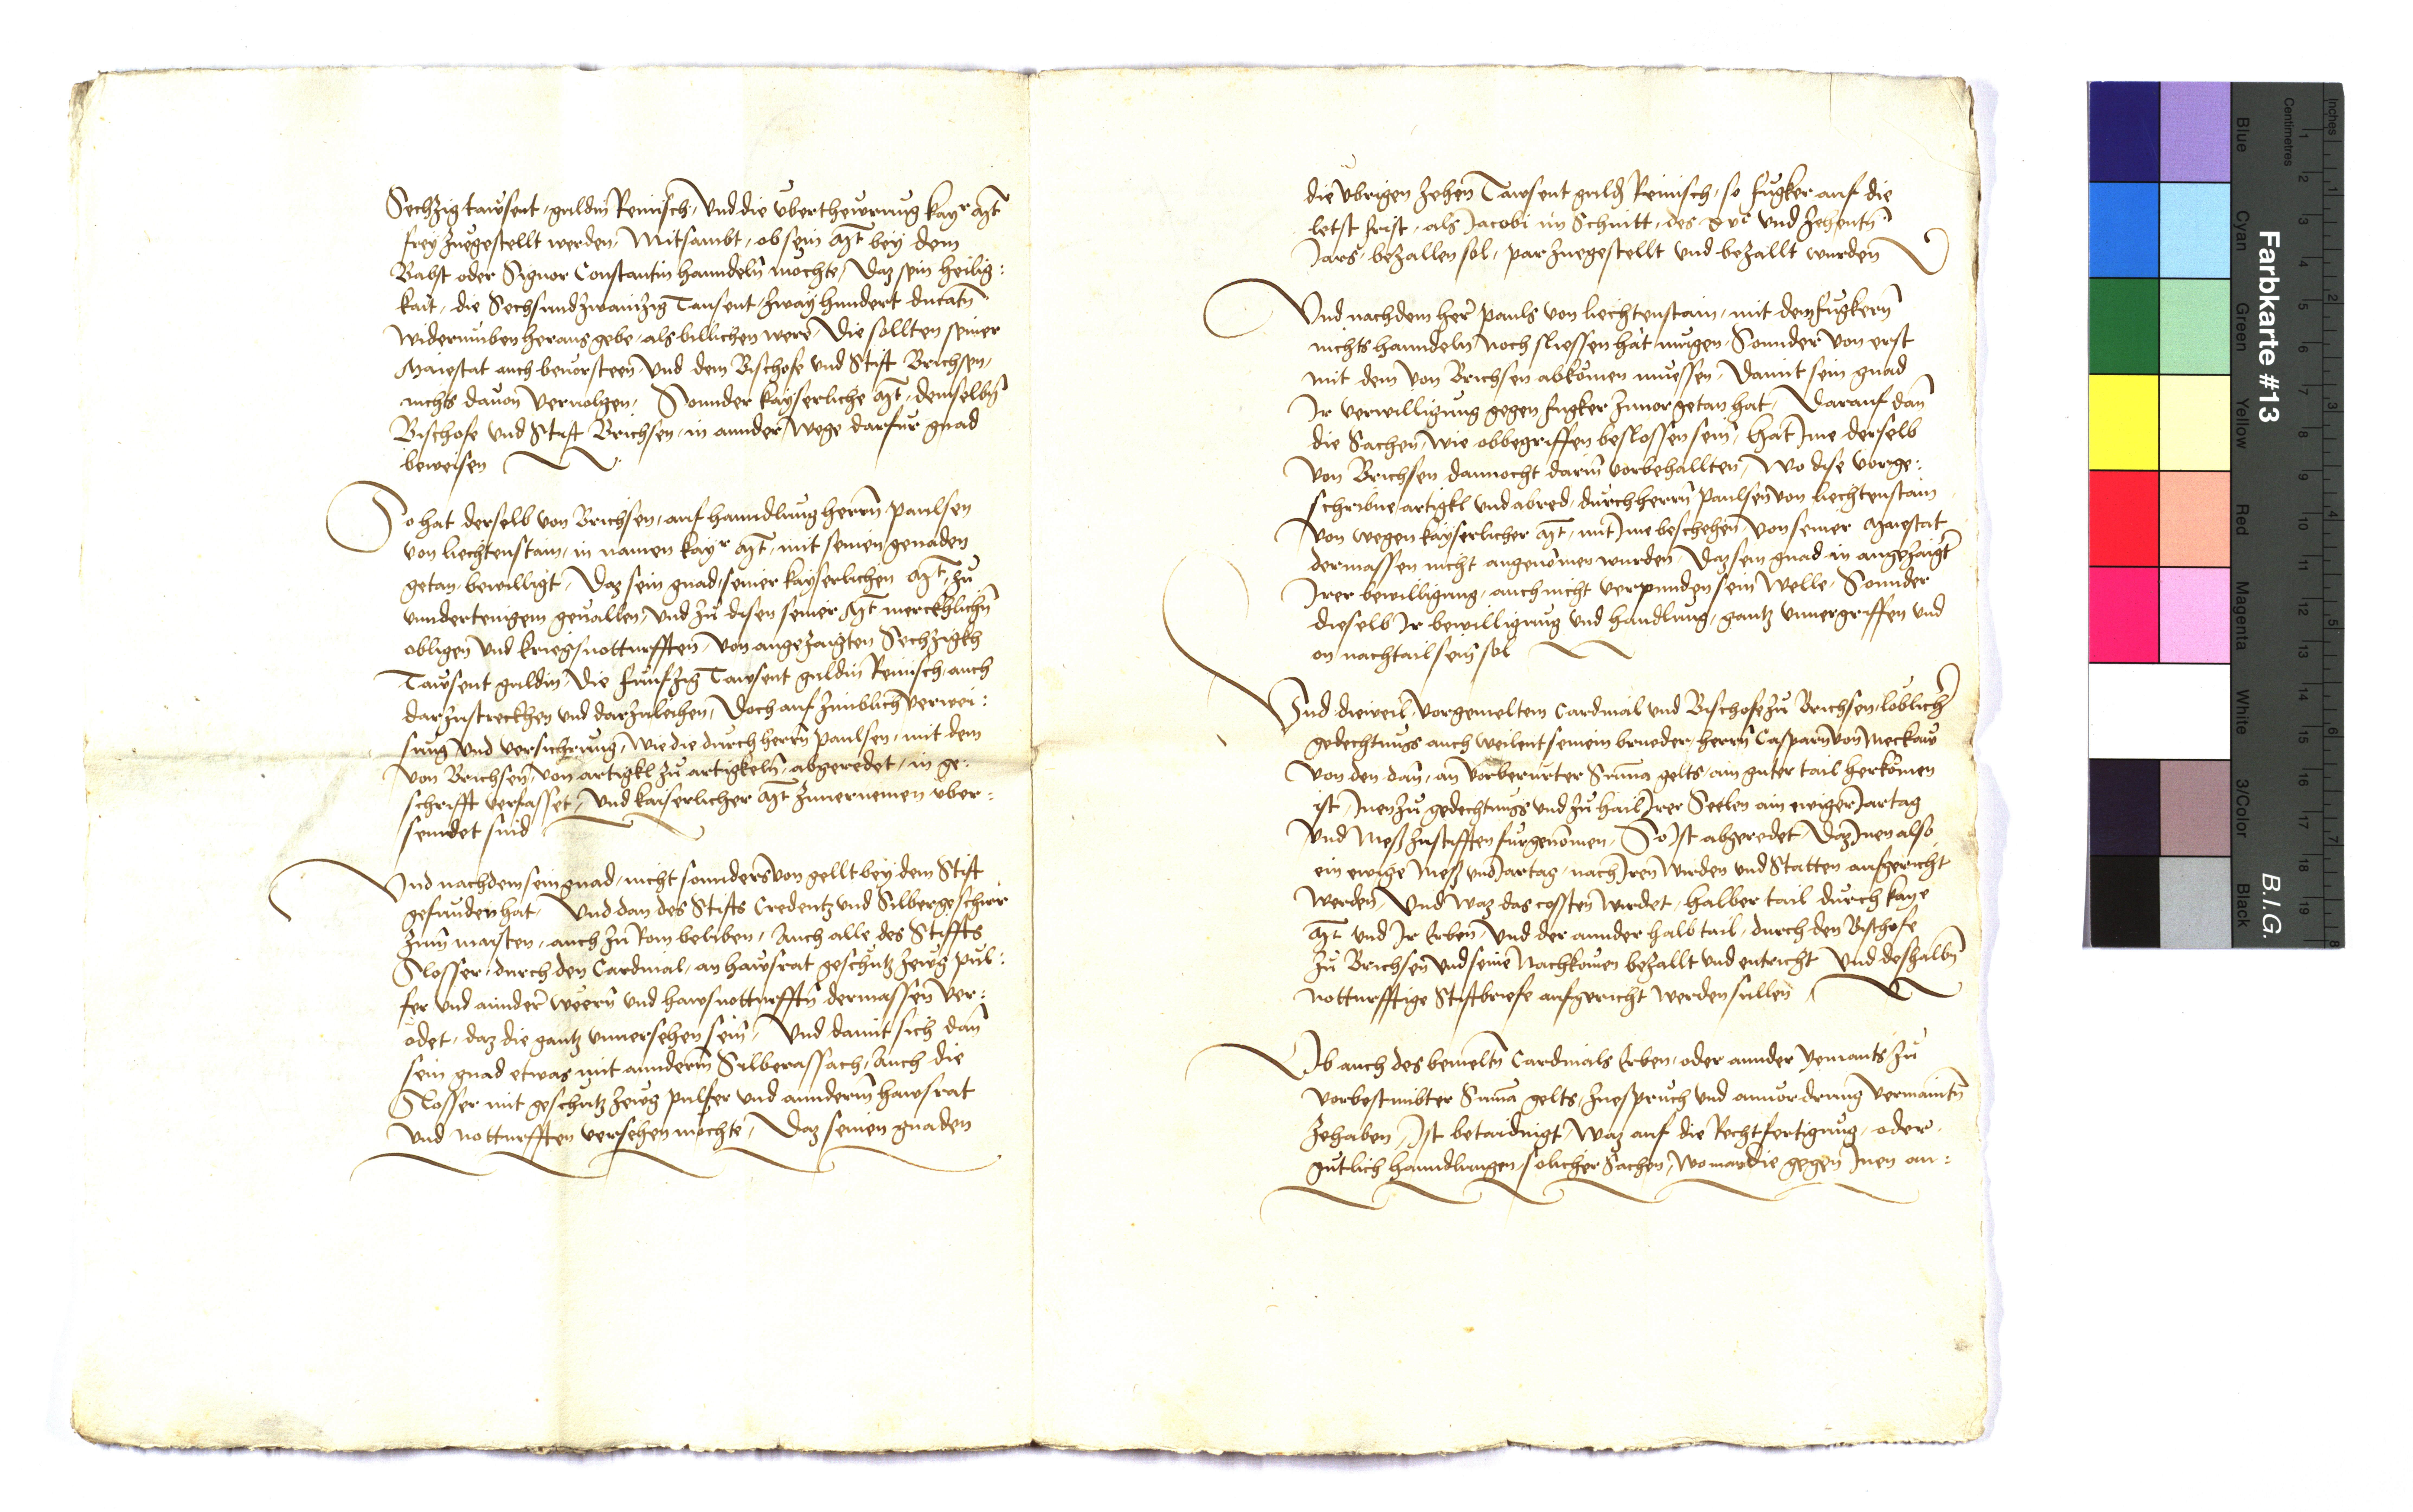 Sechzig tawsent guldin Reinisch, Und die ubertheurung kayr Mt
frey zuegestellt werden, Mitsambt, ob sein Mt bey dem
Babst oder Signor Constantin hanndeln mochte, Daz sein heilig:
kait, die Sechsundzwainzig Tausent, zway hundert ducatn
widerumben heraus gebe, als billichen were, Die sollten seiner
Maiestat auch beuorsteen, Und dem Bischofe und Stift Brichsen,
nichts dauon veruolgen, Sonnder kayserliche Mt, demselbn
Bischofe und Stift Brichsen, in annder Wege darfur gnad
beweisen
So hat derselb von Brichsen, auf hanndlung herrn paulsen
von liechtenstain, in namen kayr Mt, mit seinen genaden
getan, bewilligt, Daz sein gnad, seiner kayserlichen Mt, zu
unndertenigem geuallen, Und zu disen seiner Mt merckhlichn
obligen und kriegsnotturfften, von angezaigten Sechzigkh
Tawsent guldin, Die funfzig Tawsent guldin Reinisch, auch
darzustreckhen und darzuleihen, Doch auf zimblich verwei:
sung und versichrung, wie die durch herrn paulsen, mit dem
von Brichsen, von artigkl zu artigkeln, abgeredet, in ge:
schrifft verfasset, Und kaiserlicher Mt zuuernemen uber:
senndet sind
Und nachdem sein gnad, nicht sonnders von gellt bey dem Stift
gefunden hat, Und dan des Stifts Credentz und Silbergeschirr
zum maisten, auch zu Rom beliben, Auch alle des Stiffts
Slosser, durch den Cardinal, an hawsrat geschutz zewg pul:
fer und annder weern und hawsnotturfftn dermassen ver:
odet, daz die gantz unuersehen sein, Und damit sich dan
sein gnad etwas mit annderm Silberassach, Auch die
Slosser mit geschutz zewg pulfer und annderm hawsrat
und notturfften versehen mochte, Daz seinen gnaden
die ubrigen zehen Tawsent guld Reinisch, so fugker auf die
letst frist, als Jacobi im Schnitt, des xvc und zehentn
Jars, bezallen sol, par zuegestellt und bezallt wurden
Und nachdem her pauls von liechtenstain, mit dem fugkern
nichts hanndeln noch sliessen hat mugen, Sonnder von erst
mit dem von Brichsen abkomen muessen, Damit sein gnad
Ir verwilligung gegen fugker zuuor getan hat, Darauf dan
die Sachen, wie obbegriffen beslossen sein, hat Ime derselb
von Brichsen dannocht darin vorbehallten, Wo dise vorge:
schribne artigkl und abred, durch herrn paulsen von liechtenstain
von wegen kayserlicher Mt, mit Ime beschehen, von seiner Maiestat
dermassen nicht angenomen wurden, Daz sein gnad in angezaigter
Irer bewilligung, auch nicht verpunden sein welle, Sonnder
dieselb Ir bewilligung und handlung, gantz unuergriffen und
on nachtail sein sol
Und dieweil, vorgemeltem Cardinal und Bischofe zu Brichsen, loblicher
gedechtnuss auch weilent seinem brueder, herrn Casparn von Meckaw
von den dan, an vorberurter Suma gelts, ain guter tail herkomen
ist, Inen zu gedechtnuss und zu hail Irer Seelen ain ewiger Jartag
und Mess zustifften furgenomen, So Ist abgeredet, Daz Inen also
ein ewige Mess und Jartag, nach Iren wirden und Statten aufgericht
werden, Und waz das cossten wirdet, halber tail durch kaye
Mt und Ir Erben, Und der annder halb tail, durch den Bischofe
zu Brichsen und seine Nachkomen bezallt und entricht Und deshalbn
notturfftige Stiftbriefe aufgericht werden sullen
Ob auch des bemeltn Cardinals Erben, oder annder Yemants zu
vorbestimbter Suma gelts, Zuespruch und anuordrung vermaintn
zehaben, Ist betaidingt, Waz auf die Rechtfertigung, oder
gutlich hanndlungen, solicher Sachen, wo man die gegen Inen an:
Farbkarte #13
B.I.G.
Blue
Cyan
Green
Yellow
Red
Magenta
White
3/Color
Black
Centimetres
Inches
1
2
3
4
5
6
7
8
9
10
11
12
13
14
15
16
17
18
19
1
2
3
4
5
6
7
8